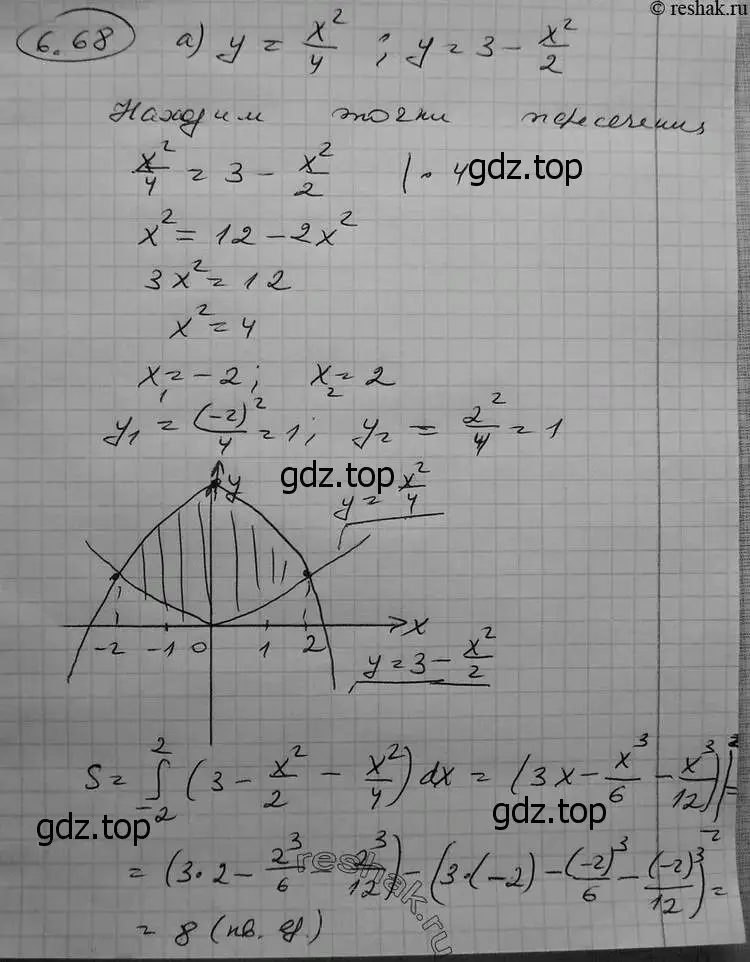 © reshak.ru
6.68 а) y = x²/4 ; y = 3 - x²/2
Находим точки пересечения
x²/4 = 3 - x²/2 | · 4
gdz.top
x² = 12 - 2x²
3x² = 12
x² = 4
x₁ = -2; x₂ = 2
y₁ = (-2)²/4 = 1; y₂ = 2²/4 = 1
gdz.top
y
y = x²/4
-2 -1 0 1 2 x
y = 3 - x²/2
S = ∫₋₂² (3 - x²/2 - x²/4) dx = (3x - x³/6 - x³/12)|₋₂² =
gdz.top gdz.top
= (3·2 - 2³/6 - 2³/12) - (3·(-2) - (-2)³/6 - (-2)³/12) =
reshak.ru
= 8 (кв. ед.)